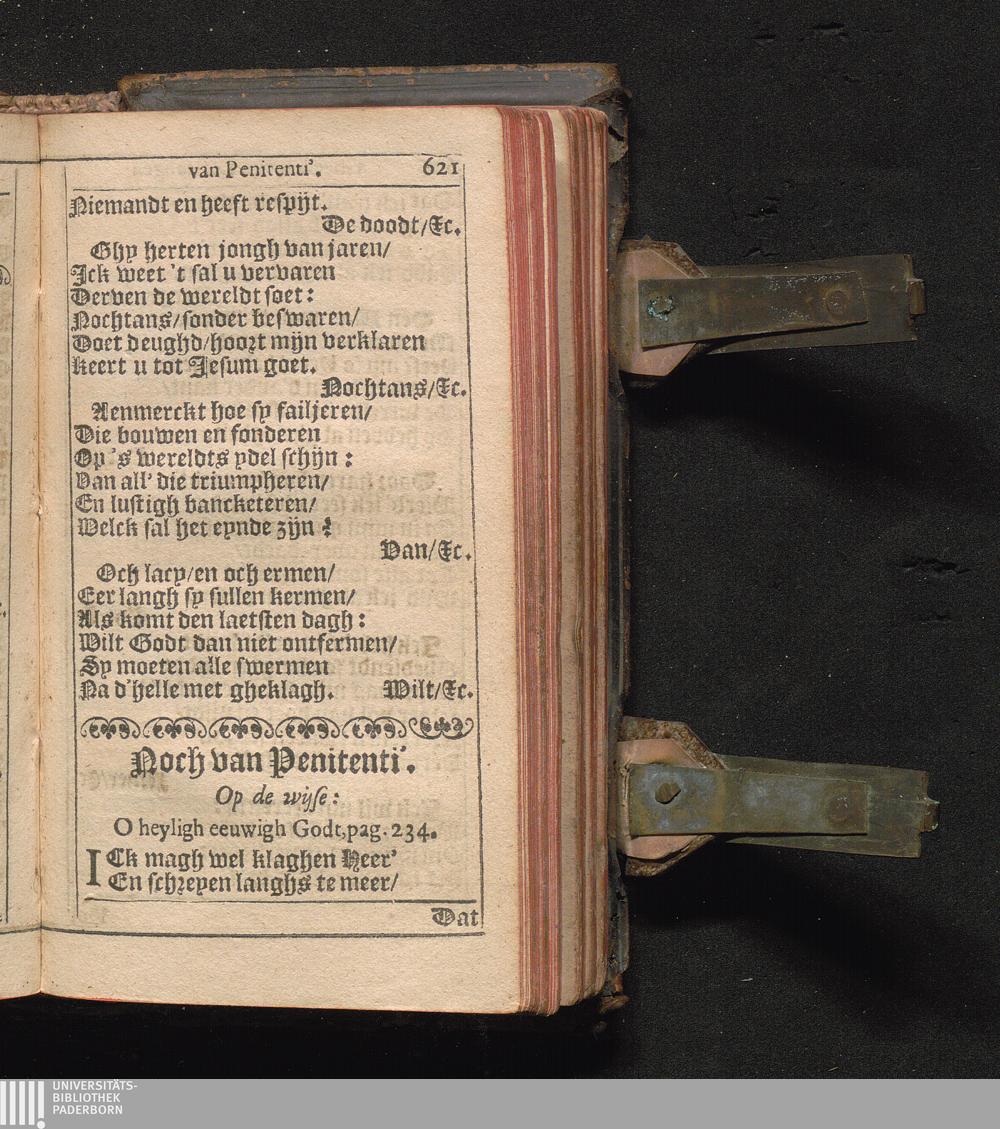 van Penitenti'. 621
Niemandt en heeft reſpijt.
De doodt/&c.
Ghy herten jongh van jaren/
Ick weet 't ſal u vervaren
Derven de wereldt ſoet:
Nochtans/ſonder beſwaren/
Doet deughd/hoort mijn verklaren
Keert u tot Jeſum goet.
Nochtans/&c.
Aenmerckt hoe ſy failjeren/
Die bouwen en fonderen
Op 's wereldts ydel ſchijn:
Van all' die triumpheren/
En luſtigh bancketeren/
Welck ſal het eynde zijn?
Van/&c.
Och lacy/en och ermen/
Eer langh ſy ſullen kermen/
Als komt den laetſten dagh:
Wilt Godt dan niet ontfermen/
Sy moeten alle ſwermen
Na d'helle met gheklagh. Wilt/&c.
Noch van Penitenti'.
Op de wijſe:
O heyligh eeuwigh Godt,pag. 234.
ICk magh wel klaghen Heer'
En ſchreyen langhs te meer/
Dat
UNIVERSITÄTS-
BIBLIOTHEK
PADERBORN